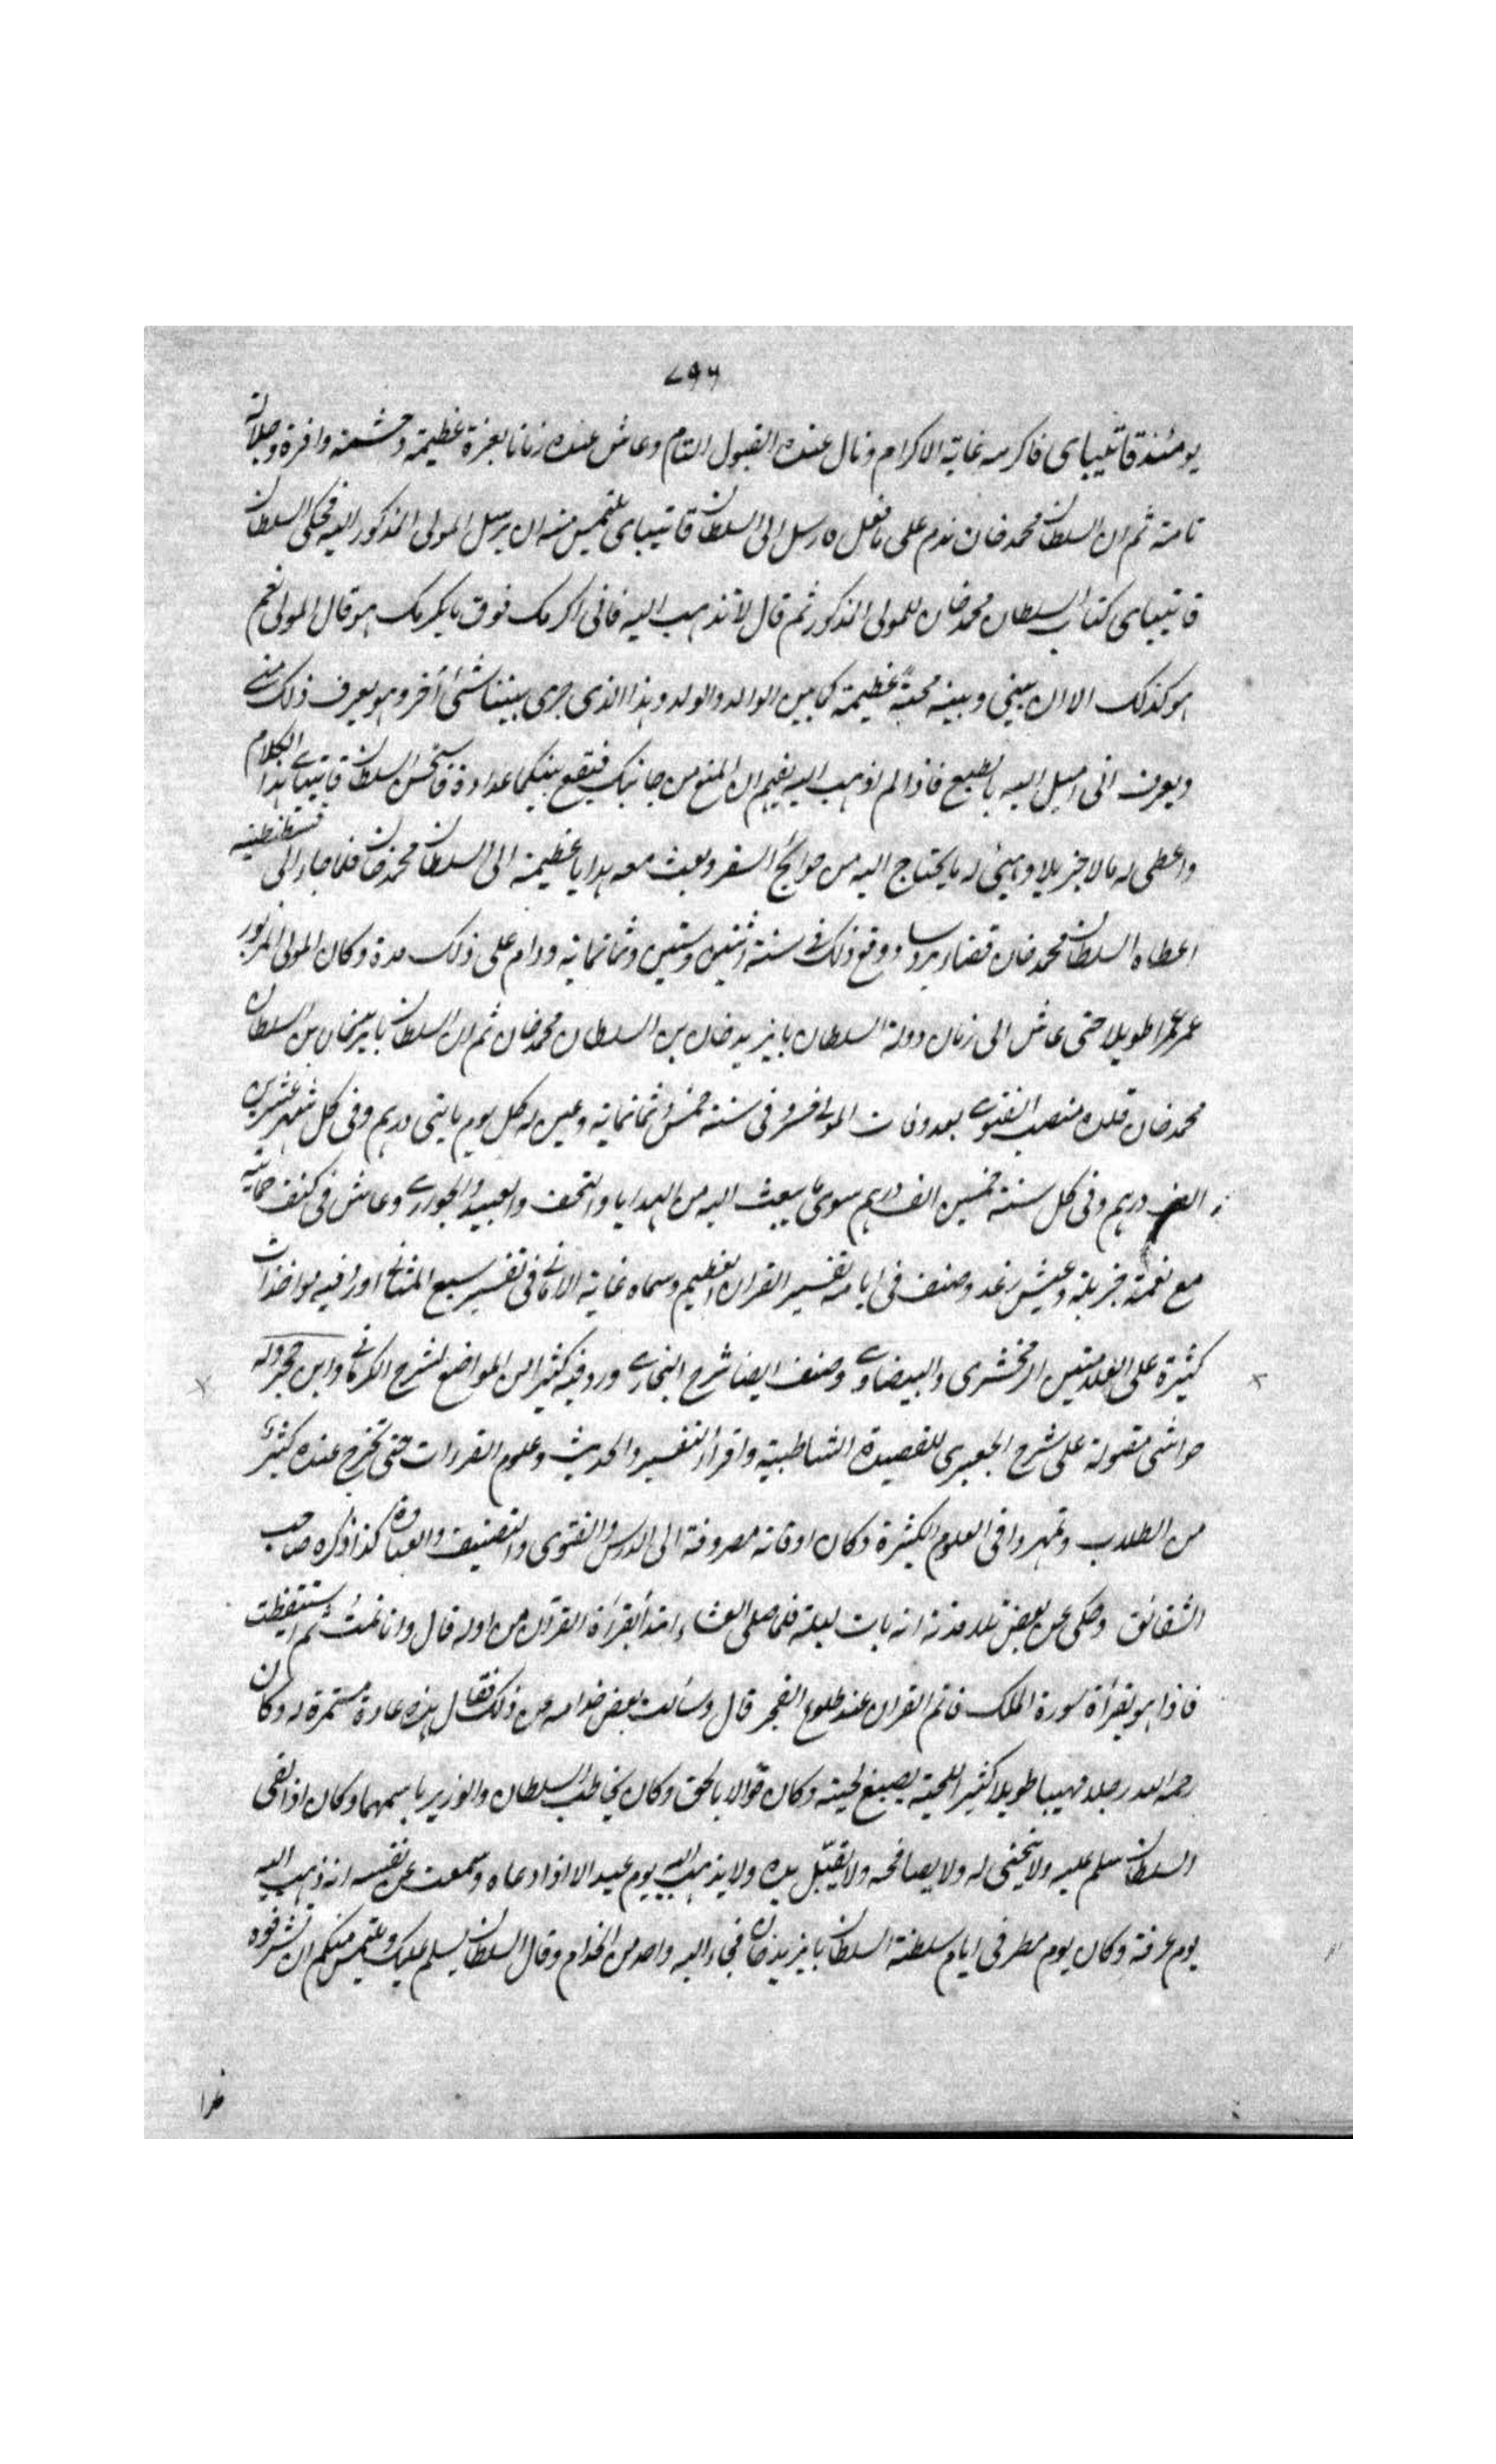 ٧٩٦
يومئذ قايتباى فاكرمه غاية الاكرام ونال عنده القبول التام وعاش عنده زمانا بعزة عظيمة وحشمة وافرة وجلالة
تامة ثم ان السلطان محمد خان ندم على ما فعل فارسل الى السلطان قايتباى يلتمس منه ان يرسل المولى المذكور اليه فحكى السلطان
قايتباى كتاب السلطان محمد خان للمولى المذكور ثم قال لا تذهب اليه فانى اكرمك فوق ما يكرمك هو قال المولى نعم
هو كذلك الا ان بينى وبينه محبة عظيمة كما بين الوالد والولد وهذا الذى جرى بيننا شئ آخر وهو يعرف ذلك منى
ويعرف انى اميل اليه بالطبع فاذا لم اذهب اليه يفهم ان المنع من جانبك فيقع بينكما عداوة فاستحسن السلطان قايتباى هذا الكلام
واعطى له مالا جزيلا وهيئ له ما يحتاج اليه من حوائج السفر وبعث معه هدايا عظيمة الى السلطان محمد خان فلما جاء الى قسطنطينية
اعطاه السلطان محمد خان قضاء بروسا ووقع ذلك فى سنة اثنتين وستين وثمانمائة ودام على ذلك مدة وكان المولى المزبور
عمر عمرا طويلا حتى عاش الى زمان دولة السلطان بايزيد خان بن السلطان محمد خان ثم ان السلطان بايزيد خان بن السلطان
محمد خان قلده منصب الفتوى بعد وفات المولى خسرو فى سنة خمس وثمانمائة وعين له كل يوم مايتى درهم وفى كل شهر عشرين
الف درهم وفى كل سنة خمسين الف درهم سوى ما يبعث اليه من الهدايا والتحف والعبيد والجوارى وعاش فى كنف حمايته
مع نعمة جزيلة وعيش رغد وصنف فى ايامه تفسير القران العظيم وسماه غاية الامانى فى تفسير سبع المثانى اورد فيه مواخذات
كثيرة على العلامتين الزمخشرى والبيضاوى وصنف ايضا شرح البخارى ورد فيه كثيرا من المواضع لشرح الكرمانى وابن حجر وله
حواشى مقبولة على شرح الجعبرى للقصيدة الشاطبية واقرأ التفسير والحديث وعلوم القراءات حتى تخرج عنده كثير
من الطلاب وتمهروا فى العلوم الكثيرة وكان اوقاته مصروفة الى الدرس والفتوى والتصنيف والعبادة كذا ذكره صاحب
الشقائق وحكى عن بعض تلامذته انه بات ليلة فلما صلى العشاء ابتدأ بقرأة القرآن من اوله قال وانا نمت ثم استيقظت
فاذا هو يقرأة سورة الملك فاتم القران عند طلوع الفجر قال وسألت بعض خدامه عن ذلك فقال هذه عادة مستمرة له وكان
رحمه الله رجلا مهيبا طويلا كثير اللحية يصبغ لحيته وكان قوّالا بالحق وكان يخاطب السلطان والوزير باسمهما وكان اذا لقى
السلطان سلم عليه ولا ينحنى له ولا يصافحه ولا يقبّل يده ولا يذهب اليه يوم عيد الا اذا دعاه وسمعت عن نفسه انه ذهب اليه
يوم عرفة وكان يوم مطر فى ايام سلطنة السلطان بايزيد خان فجاء اليه واحد من الخدام وقال السلطان يسلم عليك ويلتمس منكم ان تشرفوه